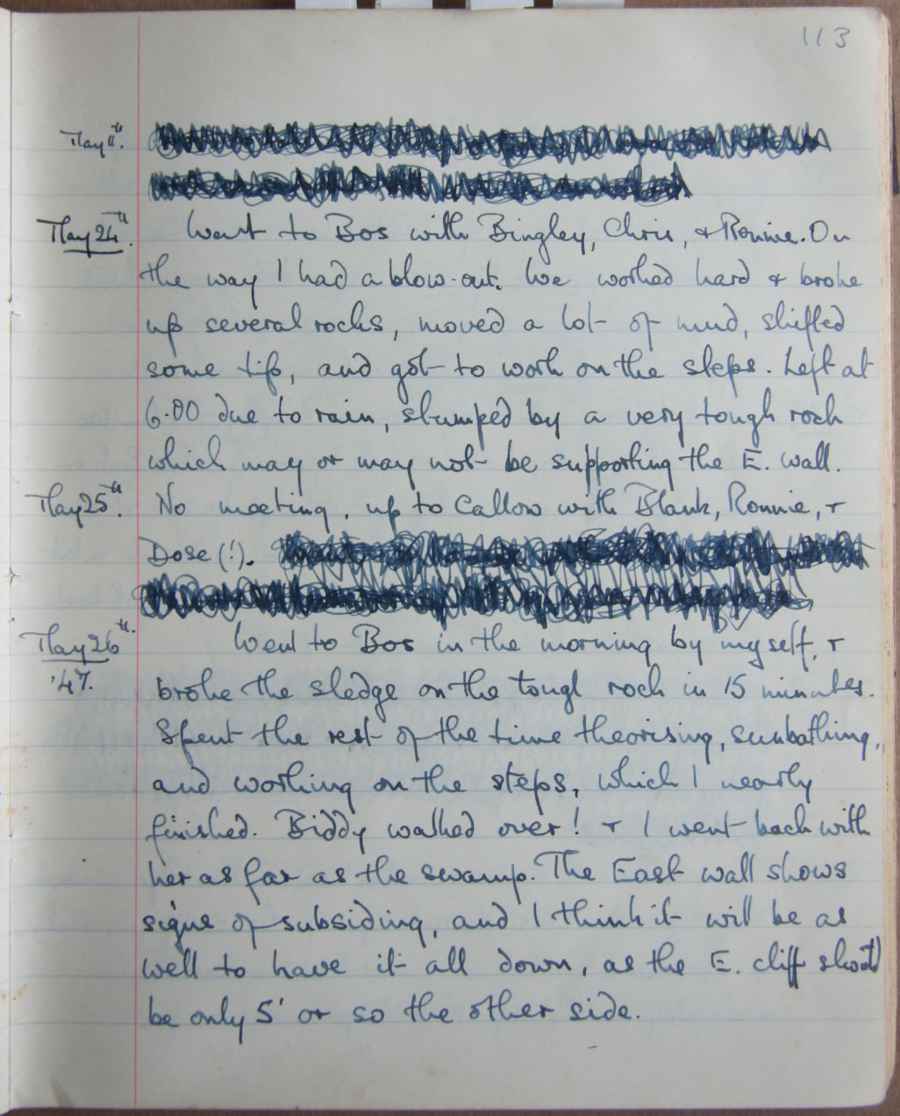 113
May 11th.
May 24th. Went to Bos with Bingley, Chris, & Ronnie. On
the way I had a blow-out. We worked hard & broke
up several rocks, moved a lot of mud, shifted
some tip, and got to work on the steps. Left at
6.00 due to rain, stumped by a very tough rock
which may or may not be supporting the E. wall.
May 25th. No meeting, up to Callow with Blank, Ronnie, &
Dose (!).
May 26th. Went to Bos in the morning by myself, &
'47. broke the sledge on the tough rock in 15 minutes.
Spent the rest of the time theorising, sunbathing,
and working on the steps, which I nearly
finished. Biddy walked over! & I went back with
her as far as the swamp. The East wall shows
signs of subsiding, and I think it will be as
well to have it all down, as the E. cliff should
be only 5' or so the other side.